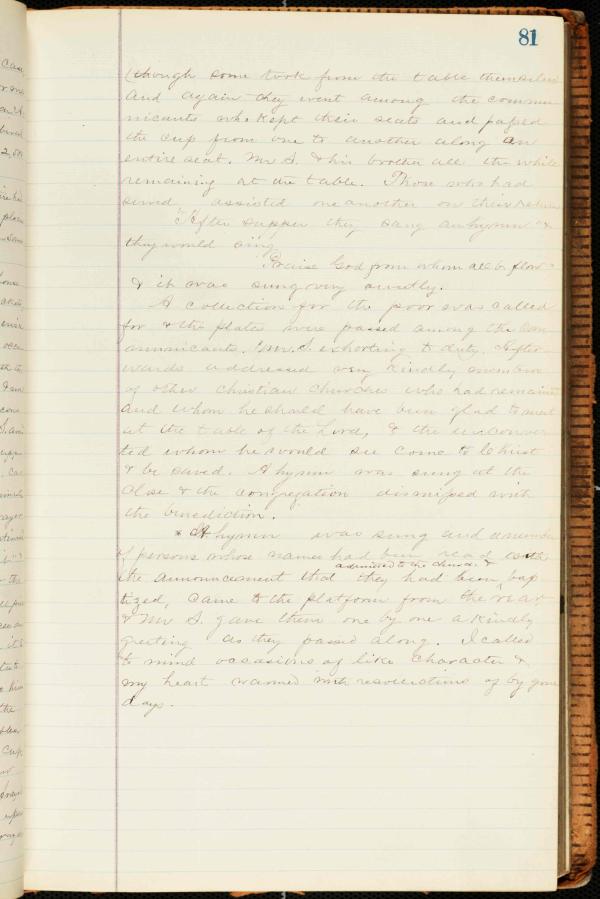 81
(though some took from the table themselves
and again they went among the commu
nicants who kept their seats and passed
the cup from one to another along an
entire seat. Mr S. & his brother all the while
remaining at the table. Those who had
served assisted one another on their return
"After supper they sang an hymn" &
they would sing
Praise God from whom all b. flow
& it was sung very sweetly.
A collection for the poor was called
for & the plates were passed among the com
municants. Mr. S. exhorting to duty. After
wards addressed very kindly members
of other Christian Churches who had remained
and whom he should have been glad to meet
at the table of the Lord, & the unconver
ted whom he would see come to Christ
& be saved. A hymn was sung at the
close & the congregation dismissed with
the benediction.
* A hymn was sung and a number
of persons whose names had been read with
admitted to the church &
the announcement that they had been bap
tized, came to the platform from the rear
& Mr S. gave them one by one a kindly
greeting as they passed along. I called
to mind occasions of like character &
my heart warmed with resollections of by gone
days.